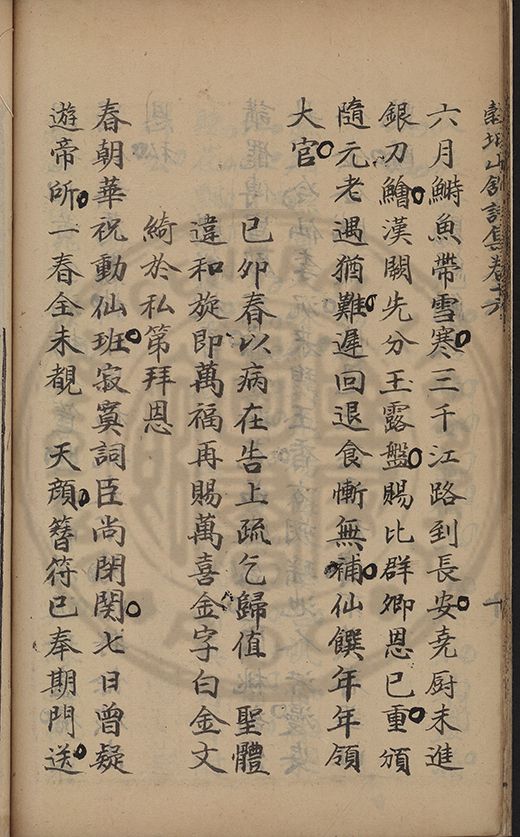 穀城山館詩集卷十六
十
六月鰣魚帶雪寒三千江路到長安堯厨未進
銀刀鱠漢闕先分玉露盤賜比群卿恩已重頒
隨元老遇猶難遲回退食慚無補仙饌年年領
大官
已夘春以病在告上疏乞歸值 聖體
違和旋即萬福再賜萬喜金字白金文
綺於私第拜恩
春朝華祝動仙班寂寞詞臣尚閉関七日曾疑
遊帝所一春全未覩 天顏簪符已奉期門送